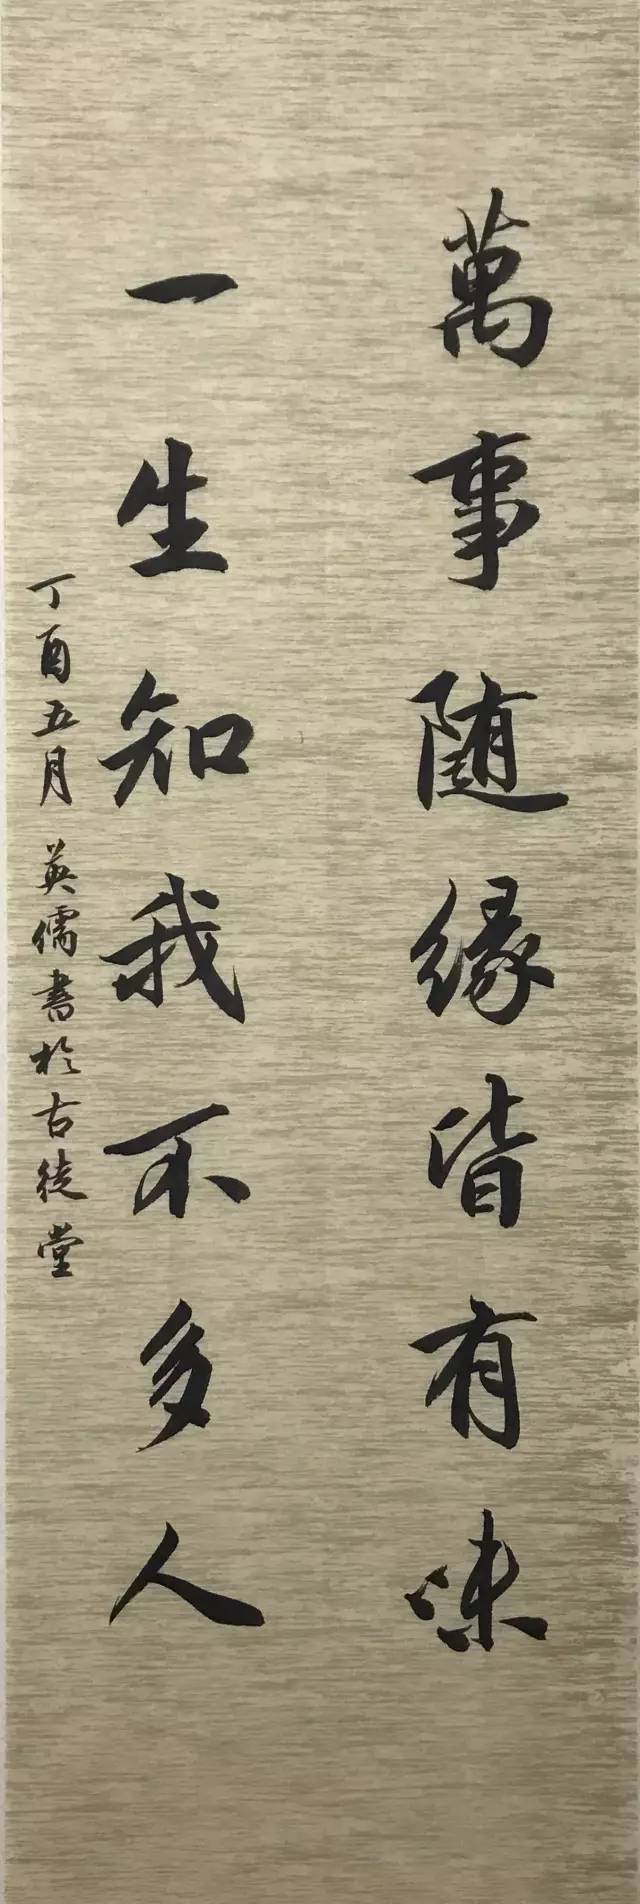 萬事随縁皆有味
一生知我不多人
丁酉五月英儒書於古徒堂